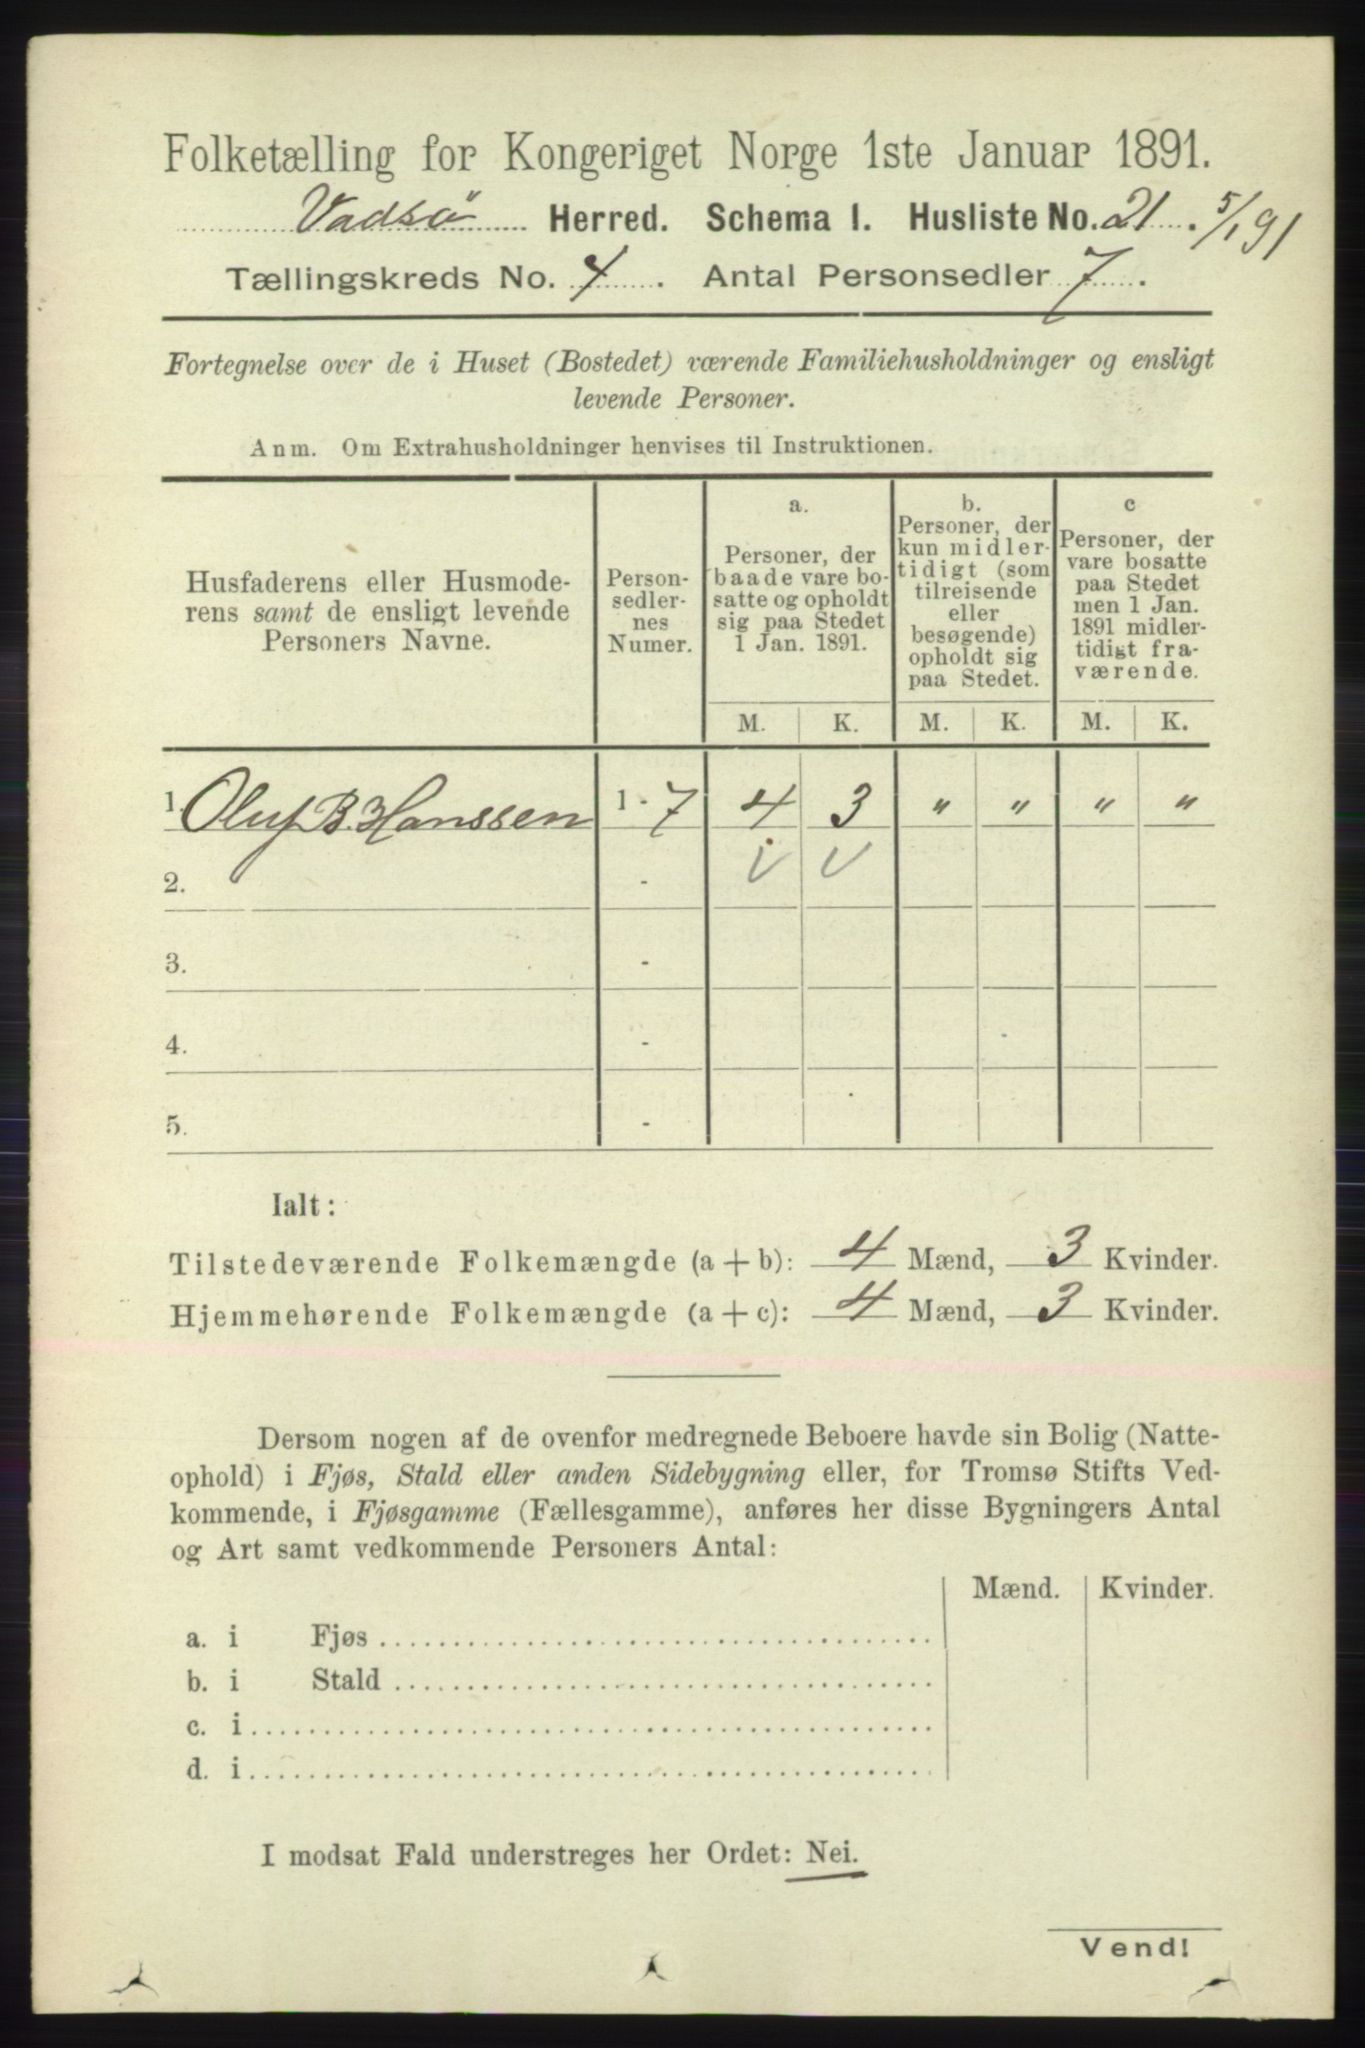 Folketælling for Kongeriget Norge 1ste Januar 1891.
Vadsø Herred. Schema I. Husliste No. 21. 5/1 91
Tællingskreds No. 4. Antal Personsedler 7.
Fortegnelse over de i Huset (Bostedet) værende Familiehusholdninger og ensligt
levende Personer.
Anm. Om Extrahusholdninger henvises til Instruktionen.
Husfaderens eller Husmode-
rens samt de ensligt levende
Personers Navne.
Person-
sedler-
nes
Numer.
a.
Personer, der
baade vare bo-
satte og opholdt
sig paa Stedet
1 Jan. 1891.
b.
Personer, der
kun midler-
tidigt (som
tilreisende
eller
besøgende)
opholdt sig
paa Stedet.
c
Personer, der
vare bosatte
paa Stedet
men 1 Jan.
1891 midler-
tidigt fra-
værende.
M. K. M. K. M. K.
1. Oluf B. Hanssen 1 - 7 4 3 " " " "
2. -
3. -
4. -
5. -
Ialt:
Tilstedeværende Folkemængde (a + b): 4 Mænd, 3 Kvinder.
Hjemmehørende Folkemængde (a + c): 4 Mænd, 3 Kvinder.
Dersom nogen af de ovenfor medregnede Beboere havde sin Bolig (Natte-
ophold) i Fjøs, Stald eller anden Sidebygning eller, for Tromsø Stifts Ved-
kommende, i Fjøsgamme (Fællesgamme), anføres her disse Bygningers Antal
og Art samt vedkommende Personers Antal:
Mænd. Kvinder.
a. i Fjøs
b. i Stald
c. i
d. i
I modsat Fald understreges her Ordet: Nei.
Vend!